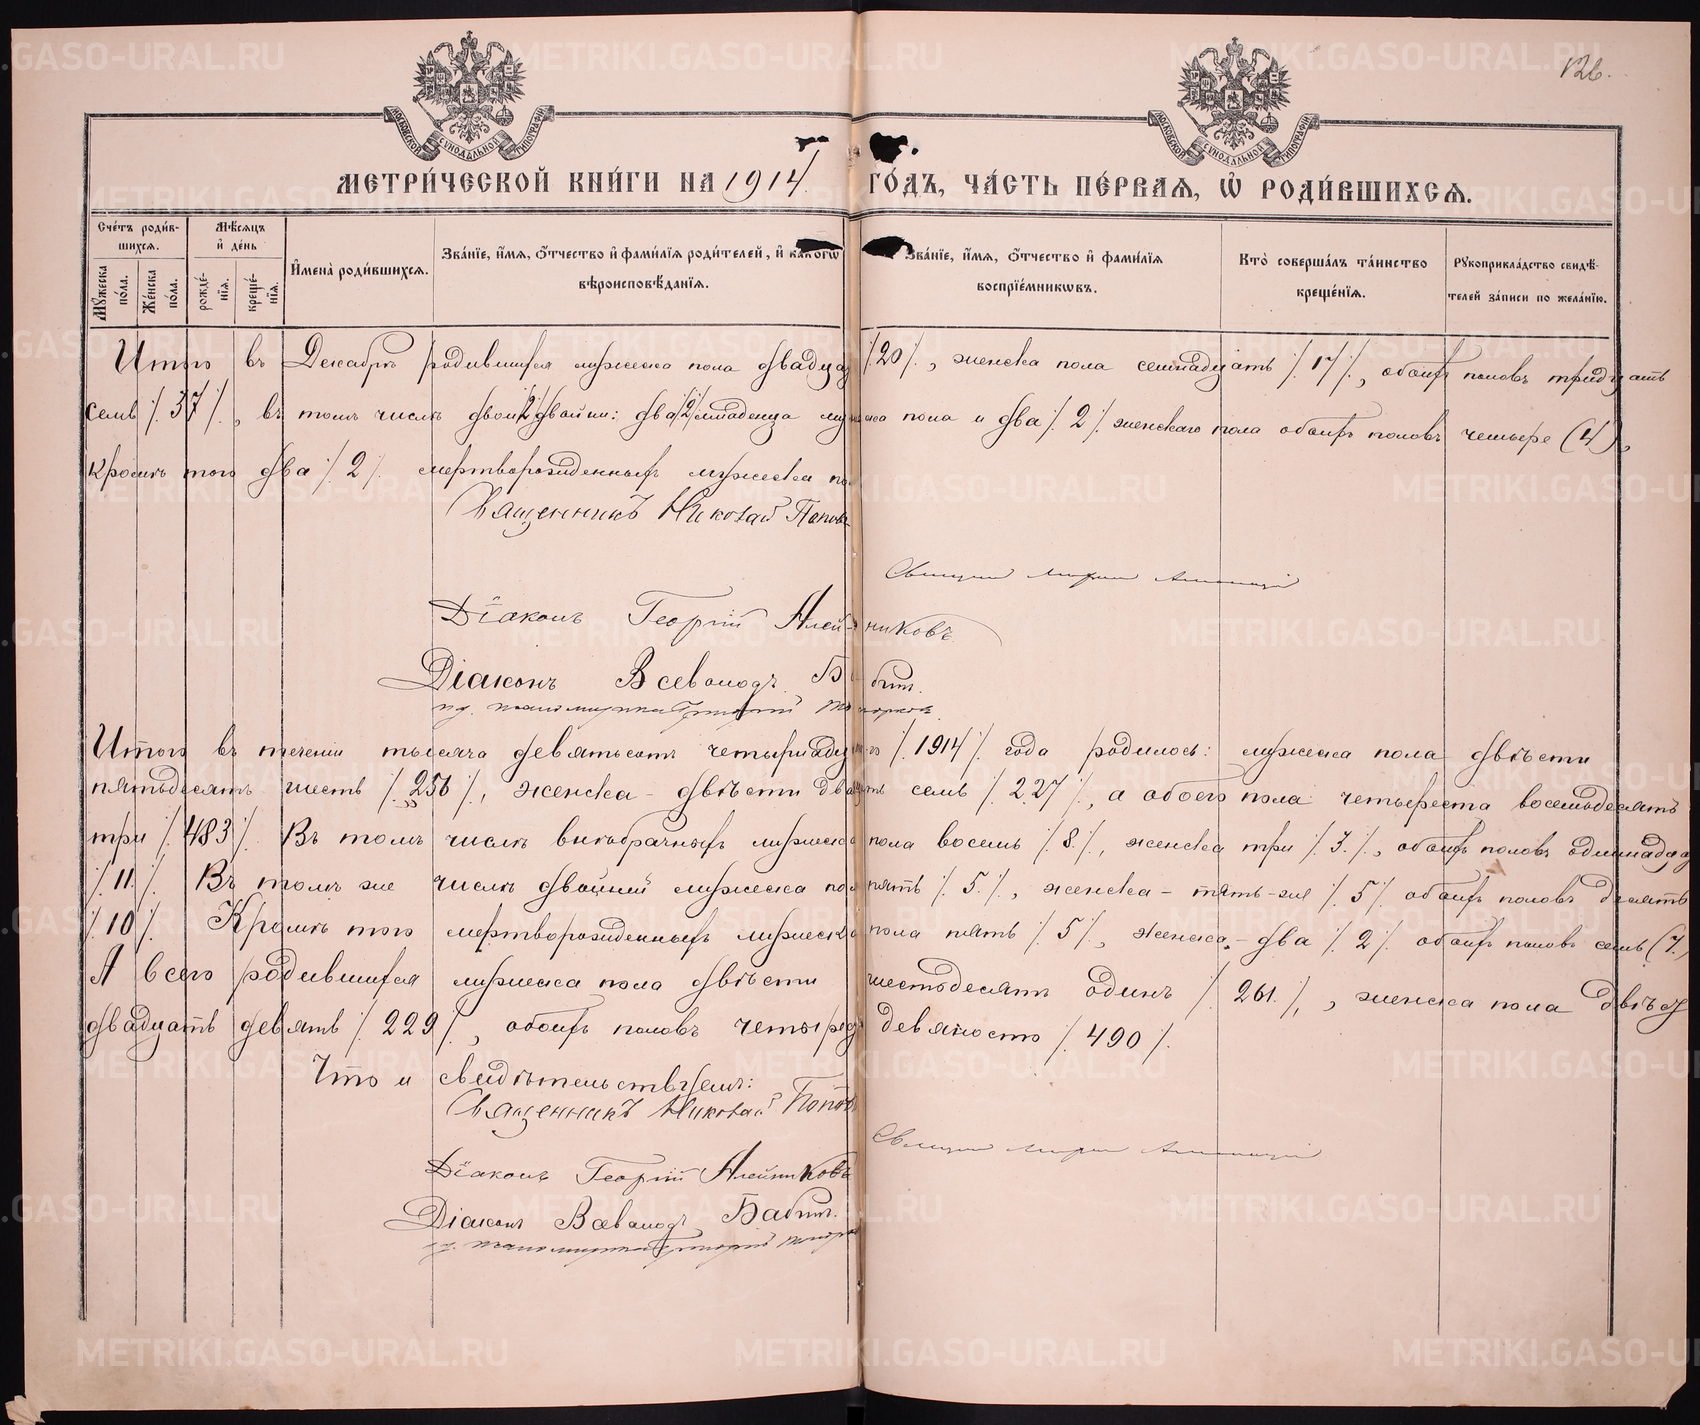 126.
МОСКОВСКОЙ СѴНОДАЛЬНОЙ ТИПОГРАФІИ
МОСКОВСКОЙ СѴНОДАЛЬНОЙ ТИПОГРАФІИ
МЕТРИ́ЧЕСКОЙ КНИ́ГИ НА 1914 ГО́ДЪ, ЧА́СТЬ ПЕ́РВАѦ, Ѡ҆ РОДИ́ВШИХСѦ.
Сче́тъ роди́в-
шихсѧ.
Мꙋ́жеска по́ла.
Же́нска по́ла.
Мѣ́сѧцъ
и҆ де́нь
рожде́-нїѧ.
креще́-нїѧ.
И҆мена̀ роди́вшихсѧ.
Зва́нїе, и҆́мѧ, ѻ҆́тчество и҆ фами́лїѧ роди́телей, и҆ како́гѡ
вѣроисповѣ́данїѧ.
Зва́нїе, и҆́мѧ, ѻ҆́тчество и҆ фами́лїѧ
воспрїе́мникѡвъ.
Кто̀ соверша́лъ та́инство
креще́нїѧ.
Рꙋкоприкла́дство свидѣ́-
телей за́писи по жела́нїю.
Итого въ Декабрѣ родившихся мужеска пола двадца /.20/., женска пола семнадцать /.17/., обоихъ половъ тридцать
семь /.37/., въ томъ числѣ двои /.2/. двойни: два /.2/. младенца мужеска пола и два /.2/. женскаго пола обоихъ половъ четыре (4),
кромѣ того два /.2/. мертворожденныхъ мужеска по
Священникъ Николай Поповъ
Діаконъ Георгій Алейниковъ
Діаконъ Всеволодъ Бабин.
Итого въ теченіи тысяча девятьсотъ четырнадцатаго /.1914/. года родилось: мужеска пола двѣсти
пятьдесятъ шесть /.256/., женска - двѣсти двадцать семь /.227/., а обоего пола четыреста восемьдесятъ
три /.483/. Въ томъ числѣ внѣбрачныхъ мужеска пола восемь /.8/., женска три /.3/., обоихъ половъ одиннадцать
/.11/. Въ томъ же числѣ двойней мужеска пола пять /.5/., женска - пять-же /.5/. обоихъ половъ десять
/.10/. Кромѣ того мертворожденныхъ мужеска пола пять /.5/., женска - два /.2/. обоихъ половъ семь (7.)
А всего родившихся мужеска пола двѣсти шестьдесятъ одинъ /.261/., женска пола двѣсти
двадцать девять /.229/., обоихъ половъ четыреста девяносто /.490/.
Что и свидѣтельствуемъ:
Священникъ Николай Поповъ
Діаконъ Георгій Алейниковъ
Діаконъ Всеволодъ Бабин.
METRIKI.GASO-URAL.RU